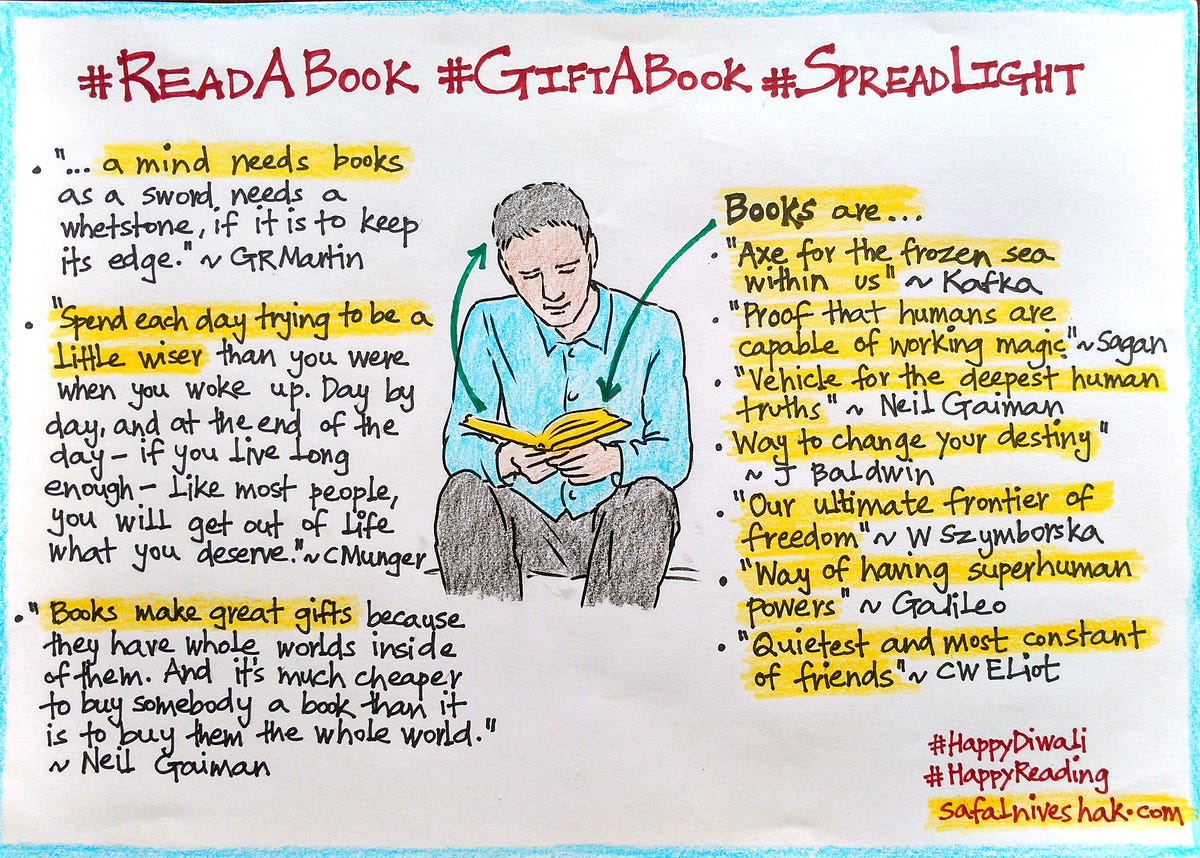 #READABOOK #GIFTABOOK #SPREADLIGHT
• "... a mind needs books
as a sword needs a
whetstone, if it is to keep
its edge." ~ GRMartin
• "Spend each day trying to be a
little wiser than you were
when you woke up. Day by
day, and at the end of the
day - if you live long
enough - like most people,
you will get out of life
what you deserve." ~ CMunger
• "Books make great gifts because
they have whole worlds inside
of them. And it's much cheaper
to buy somebody a book than it
is to buy them the whole world."
~ Neil Gaiman
Books are...
• "Axe for the frozen sea
within us" ~ Kafka
• "Proof that humans are
capable of working magic" ~ Sagan
• "Vehicle for the deepest human
truths" ~ Neil Gaiman
• Way to change your destiny"
~ J Baldwin
• "Our ultimate frontier of
freedom" ~ W Szymborska
• "Way of having superhuman
powers" ~ Galileo
• "Quietest and most constant
of friends" ~ CW Eliot
#HappyDiwali
#HappyReading
safalniveshak.com